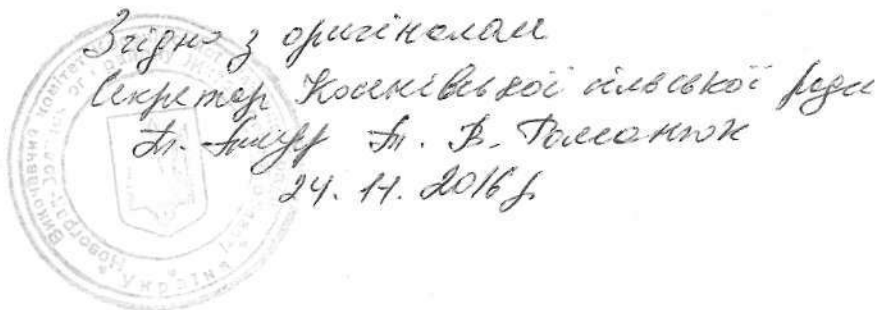 Згідно з оригіналом
Секретар Косенівської сільської ради
Т. В. Романюк
24. 11. 2016 р.
Виконавчий комітет
Новоград
Україна